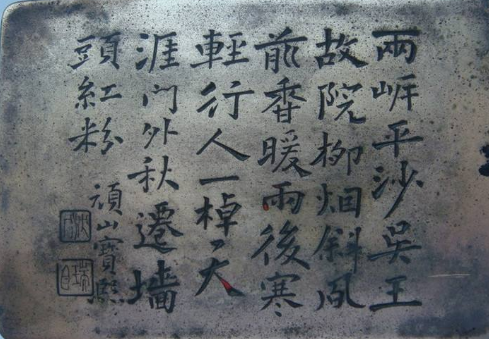 兩岍平沙吳王
故院柳烟斜風
前香暖雨後寒
輕行人一棹天
涯門外秋遷墻
頭紅粉
頑山寶熙